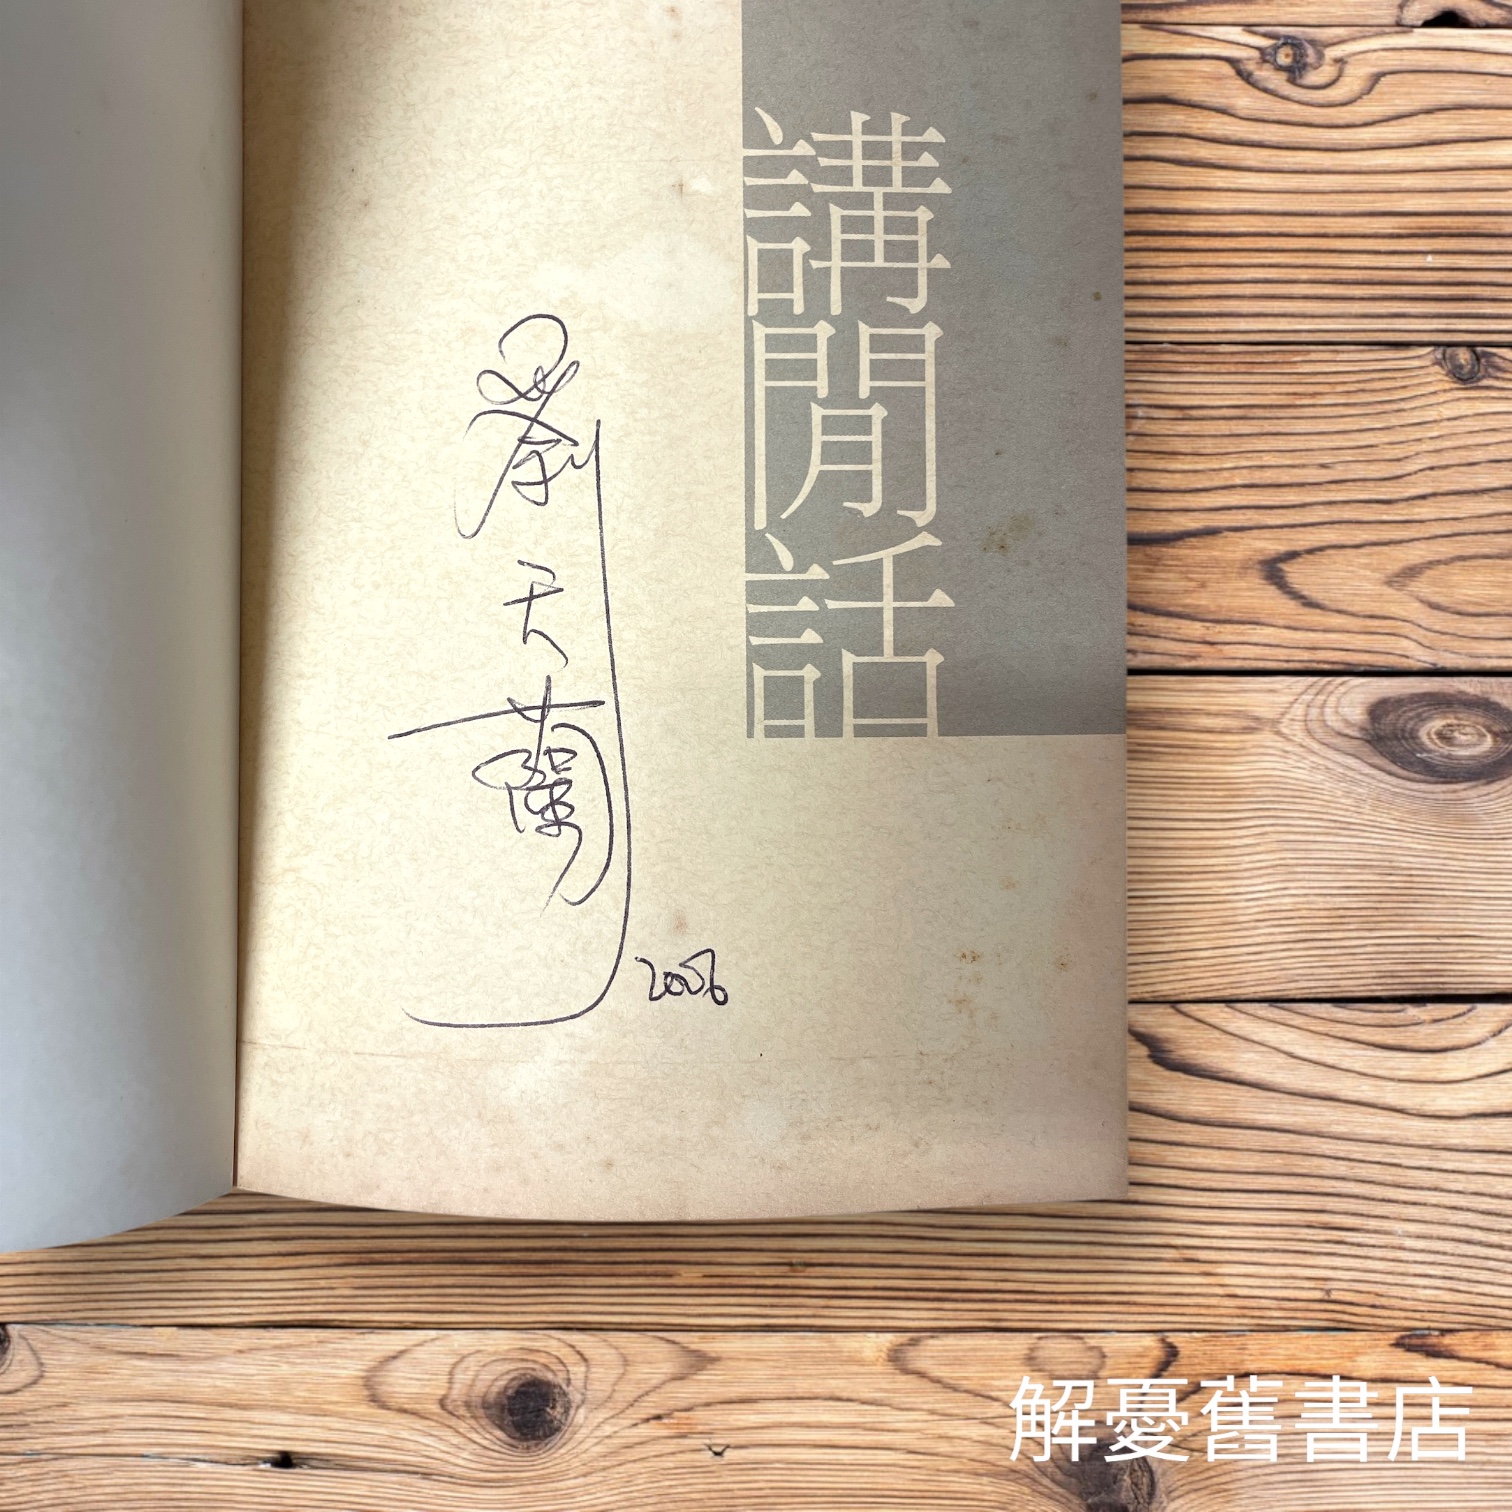 講閒話
劉天蘭
2006
解憂舊書店